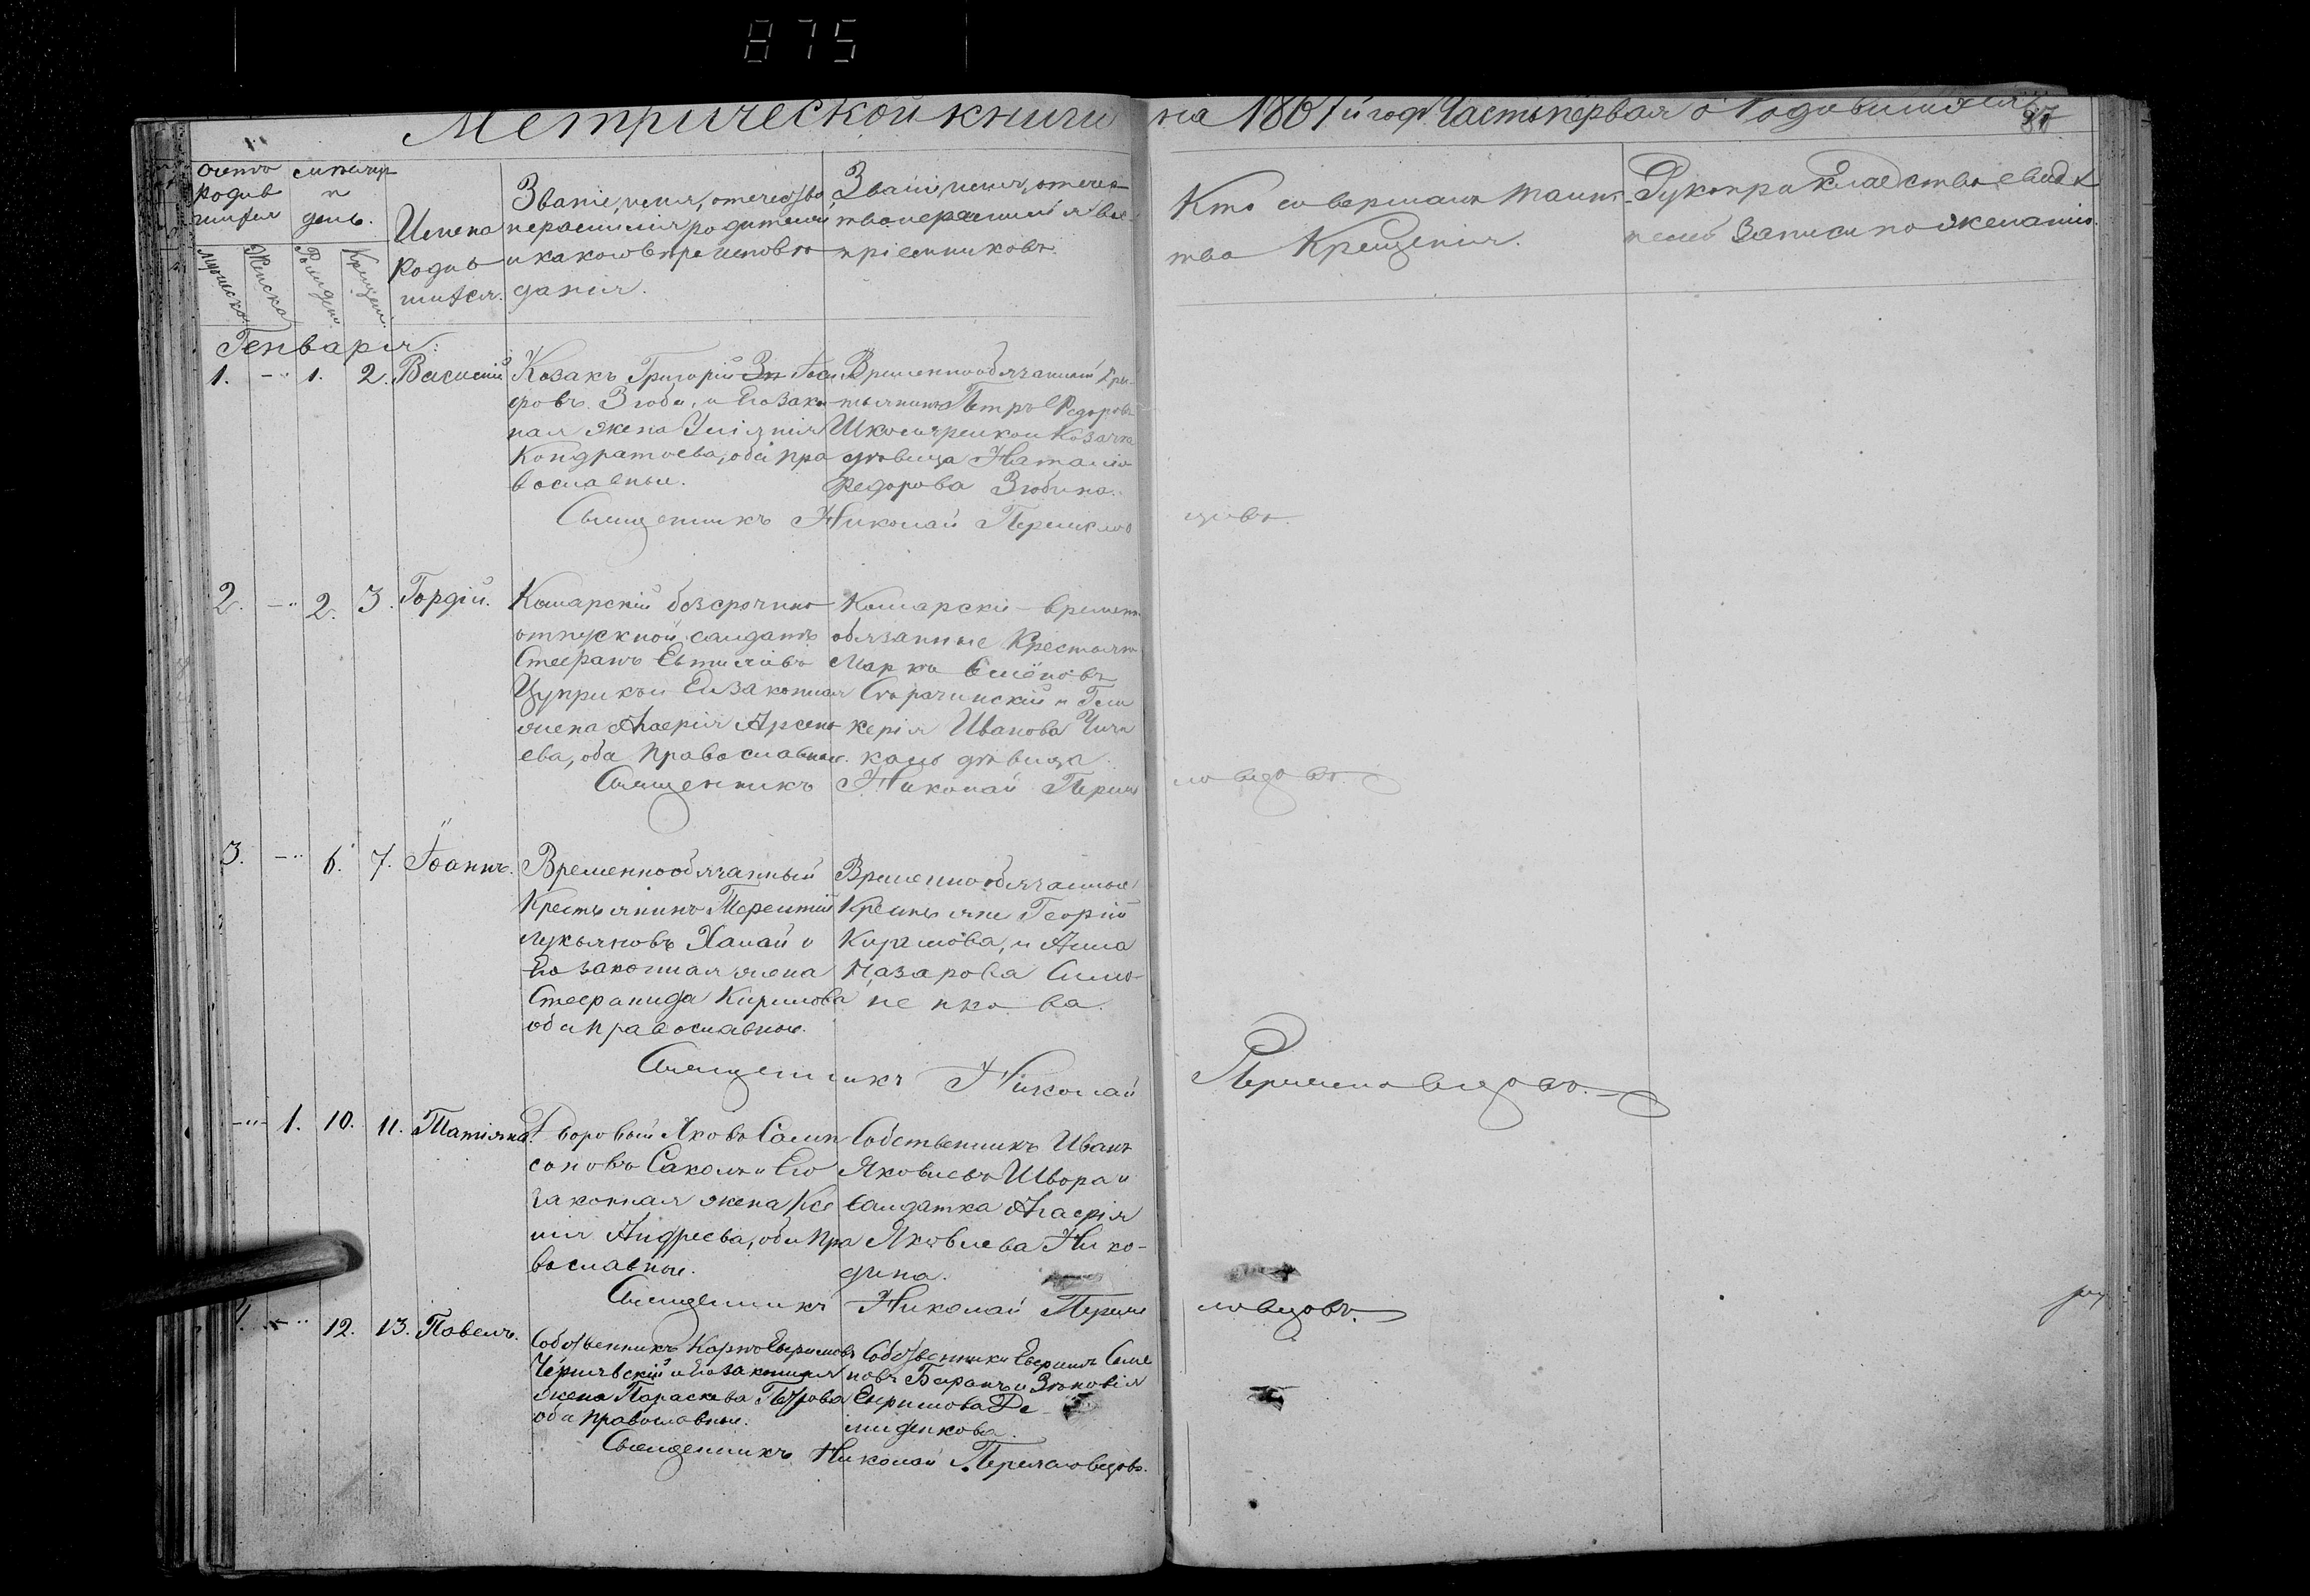 875
Метрической книги на 1867й годъ Часть первая о родившихся
87
Счетъ
родив
шихся
и
день.
Мужеска
Женска
Рожден.
Крещен.
Имена
родив
шихся.
Званіе, имя, отечество
и фамилія родителей
и какого вѣроисповѣ
данія.
Званіе, имя, отечес
тво и фамилія вос
пріемниковъ.
Кто совершалъ таинс
тво Крещенія.
Рукоприкладство свидѣ
телей записи по желанію.
Генваря:
1. -" 1. 2. Василій
Козакъ Григорій
ровъ Зюба, и Его закон
ная жена Уліянія
Кондратьева, оба пра
вославные.
Временнообязанный Кре
стьянинъ Петръ Федоровъ
Школяренко и Козачка
дѣвица Наталія
Федорова Зюбина.
Священникъ Николай Перемысло
вцовъ.
2. -" 2. 3. Гордій.
безсрочно
отпускной солдатъ
Стефанъ Евтиміевъ
Цуприкъ и Его законная
жена Агафія Арсень
ева, оба православные.
временно
обязанные Крестьян
Марко Семёновъ
и Гли
керія Иванова Чич
кань дѣвица.
Священникъ Николай Перемы
словцовъ.
3. -" 6. 7. Іоаннъ.
Временнообязанный
Крестьянинъ Терентій
Лукьяновъ Халай и
Его законная жена
Стефанида Кирилова
оба православные.
Временнообязанные
Крестьяне Георгій
Кирилова, и Анна
Назарова Симо-
ненкова.
Священникъ Николай Перемысловцовъ.
-"- 1. 10. 11. Татіяна.
Дворовый Яковъ Самп
соновъ Саколъ и Его
законная жена Ксе
нія Андреева, оба пра
вославные.
Собственникъ Иванъ
Яковлевъ Швора и
солдатка Агафія
Яковлева Нико-
дина.
Священникъ Николай Перемы
словцовъ.
4. -" 12. 13. Павелъ.
Собственникъ Карпъ Ефримовъ
Чернявскій и Его законная
жена Параскева Петрова
оба православные.
Собственники Ефримъ Семе
новъ Баранъ и Зѣновія
Ефримова Де-
миденкова.
Священникъ Николай Перемысловцовъ.